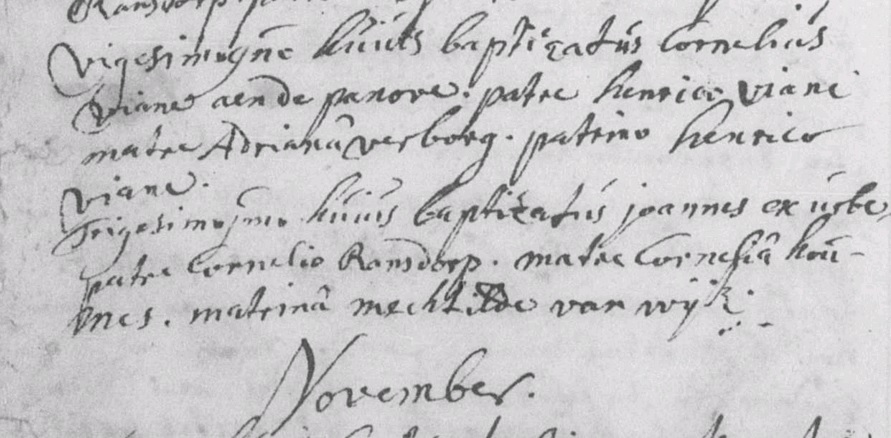 Vigesimo9no huius baptizatus Cornelius
Viane aende panove. patre henrico Viane
matre Adrianâ verborg. patrino henrico
viane.
Trigesimo jmo huius baptizatus joannes ex urbe,
patre Cornelio Ransdorp. matre Corneliâ hou-
mes. matrinâ mechtilde van wijk.
November.